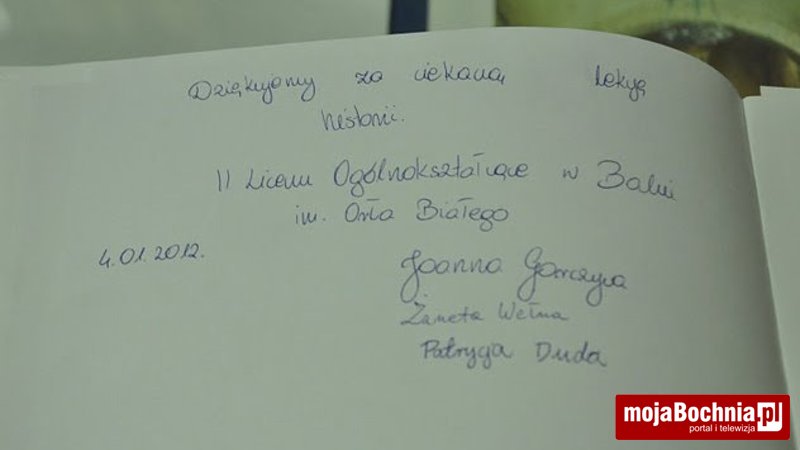 Dziękujemy za ciekawą lekcję
historii.
II Liceum Ogólnokształcące w
im. Orła Białego
4.01.2012.
Joanna Gorczyca
Żaneta Wełna
Patrycja Duda
mojaBochnia.pl
portal i telewizja